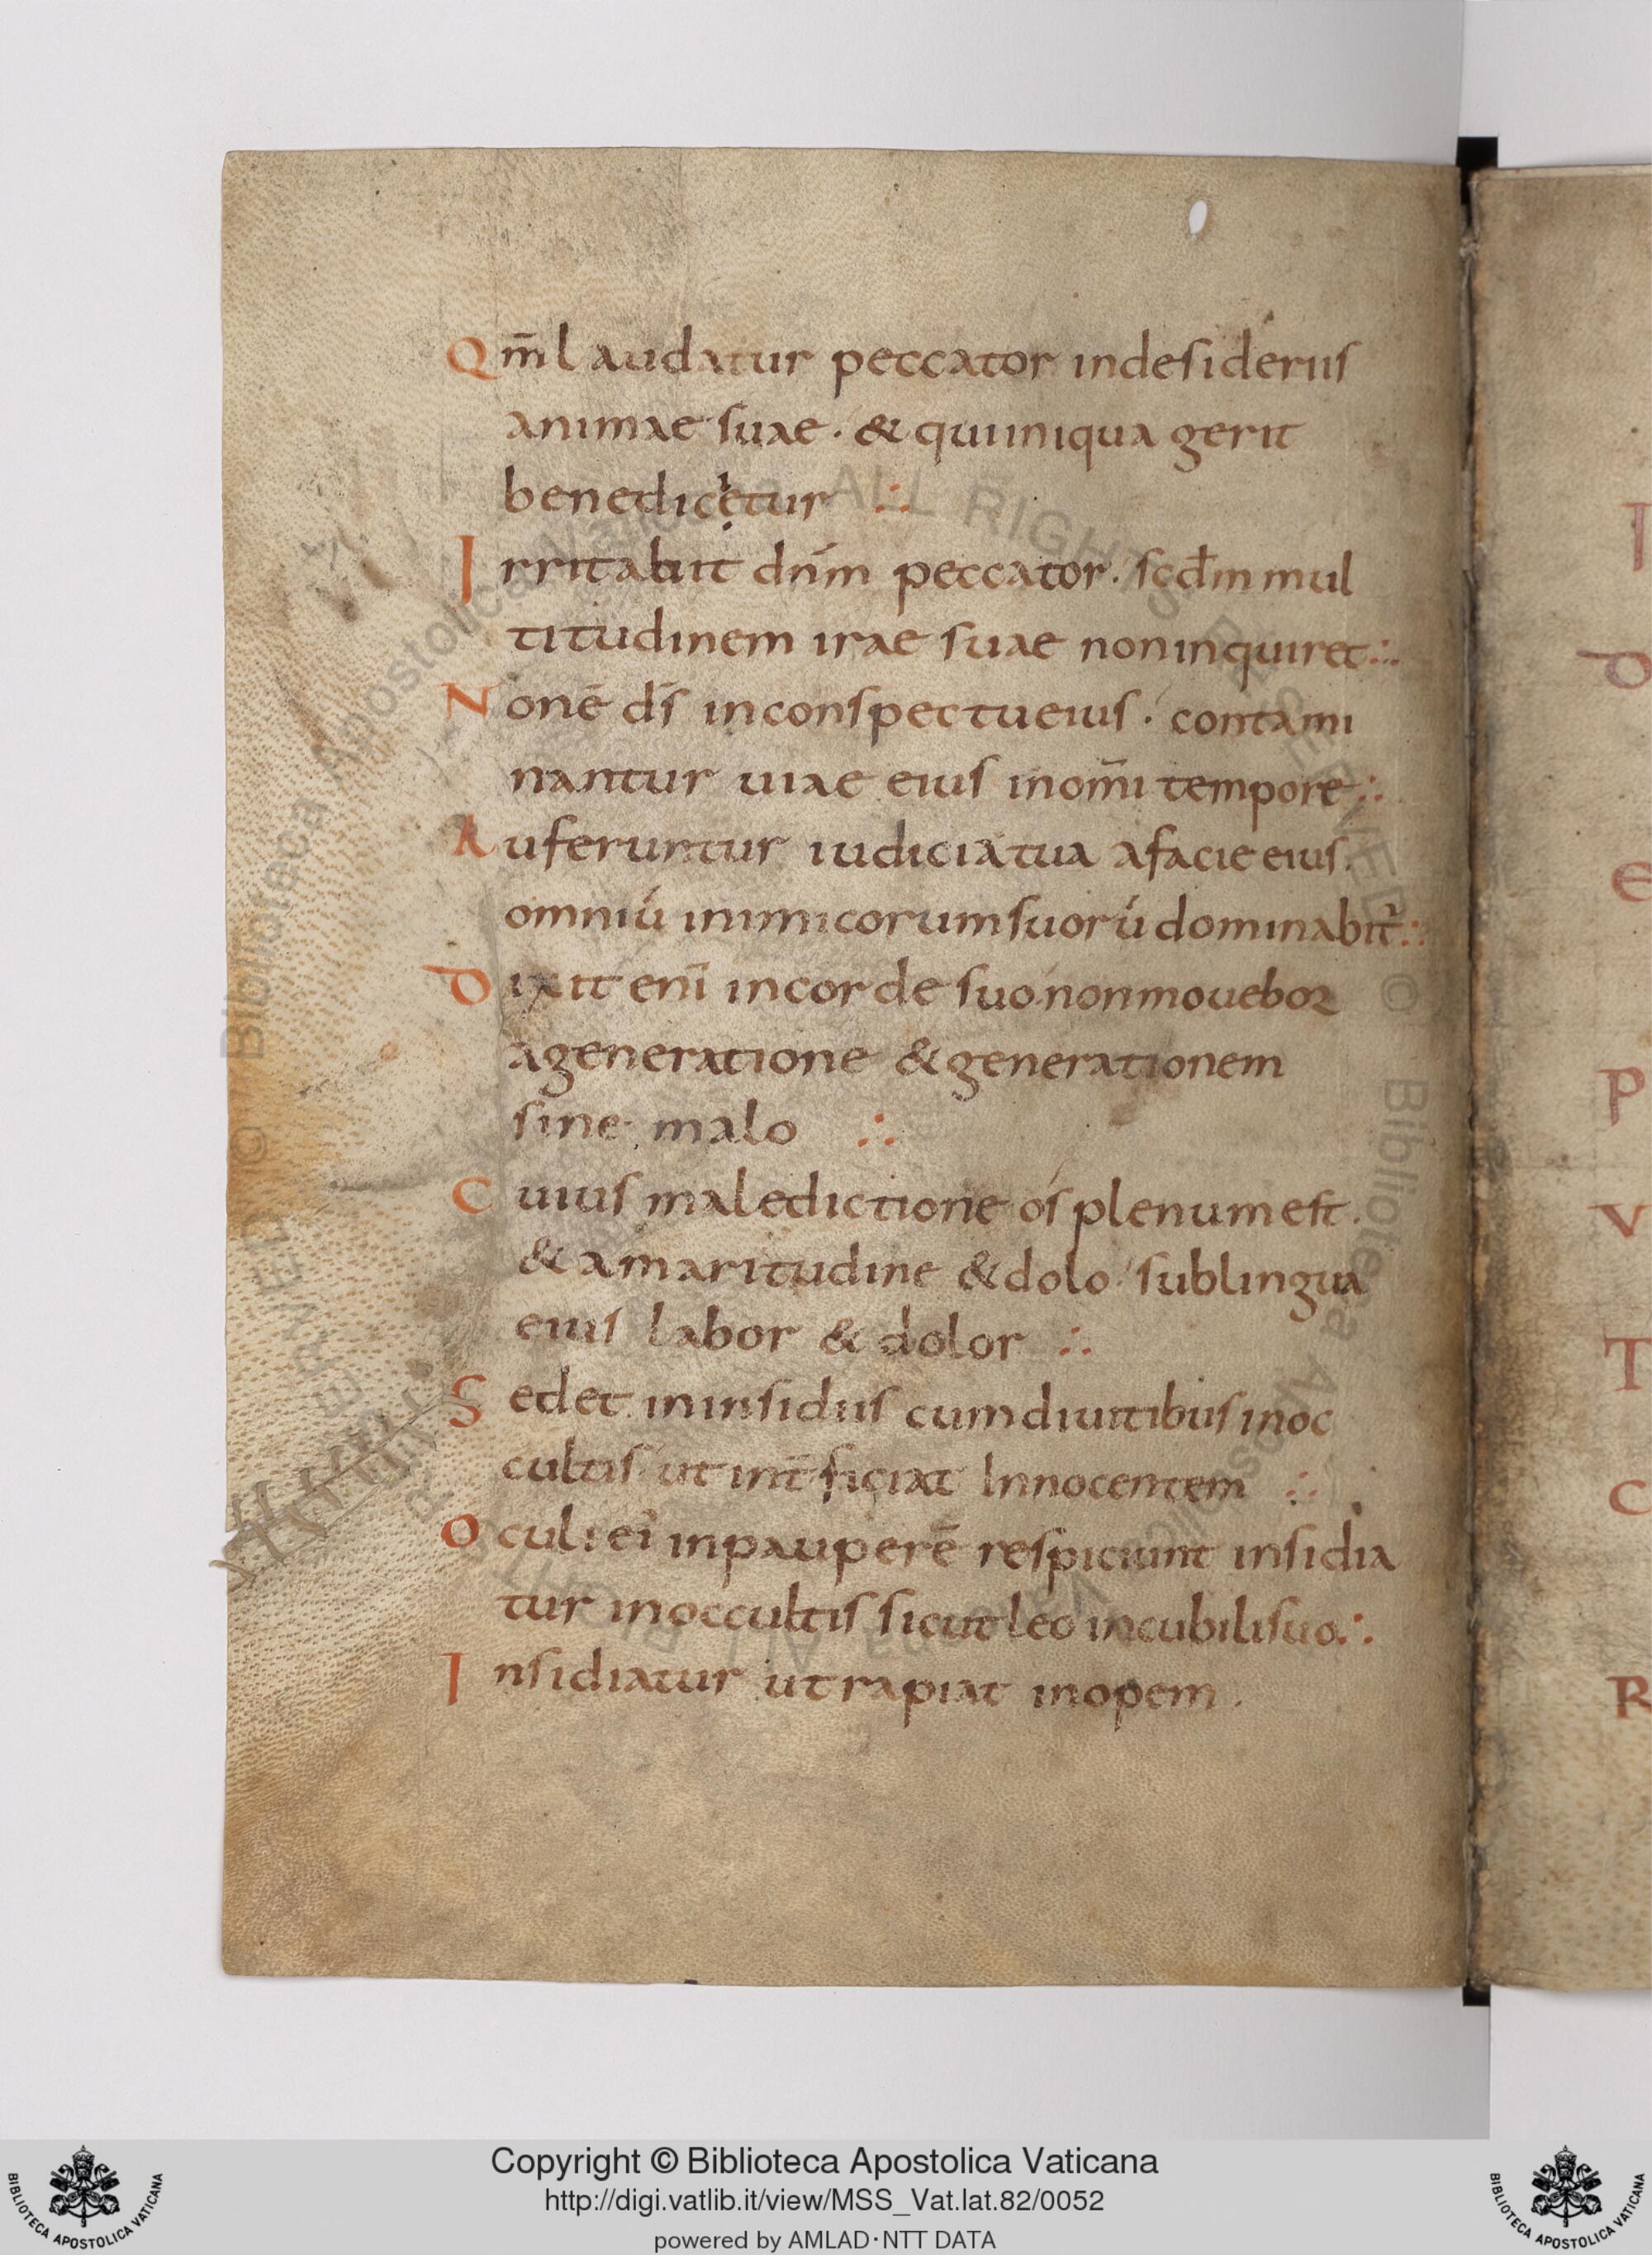 Qm̄ laudatur peccator indesideriis
animae suae · & quiiniqua gerit
benedicetur ∴
Irritabit dn̄m peccator · scd̄m mul
titudinem irae suae noninquiret ∴
Nonē ds̄ inconspectueius · contami
nantur uiae eius inom̄i tempore ∴
Auferuntur iudiciatua afacie eius ·
omniū inimicorumsuorū dominabit̄ ∴
Dixit eni̅ incorde suo nonmouebor
ageneratione & generationem
sine malo ∴
Cuius maledictione os plenumest ·
& amaritudine & dolo · sublingua
eius labor & dolor ∴
Sedet ininsidiis cumdiuitibus inoc
cultis ut int̄ficiat Innocentem ∴
Oculi ei inpauperē respiciunt insidia
tur inoccultis sicut leo incubilisuo ∴
Insidiatur ut rapiat inopem ·
I
D
E
P
V
T
C
R
Copyright © Biblioteca Apostolica Vaticana
http://digi.vatlib.it/view/MSS_Vat.lat.82/0052
powered by AMLAD·NTT DATA
BIBLIOTECA APOSTOLICA VATICANA
BIBLIOTECA APOSTOLICA VATICANA